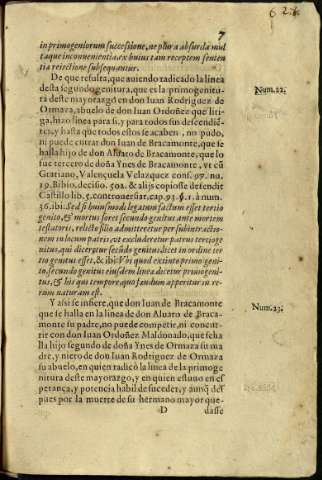 6 2
7
in primogeniorum successione, ne plura absurda mul
taque inconuenientia ex huiusmodi receptem senten
tia reiectione subsequantur.
De que resulta, que auiendo radicado la linea
desta segundogenitura, que es la primogenitu
ra deste mayorazgo en don Iuan Rodriguez de
Ormaza, abuelo de don Iuan Ordoñez que liti-
ga, hizo linea para si, y para todos sus descendiẽ-
tes, y hasta que todos estos se acaben, no pudo,
ni puede entrar don Iuan de Bracamonte, que se
halla hijo de don Aluaro de Bracamonte, que lo
fue tercero de doña Ynes de Bracamonte, vt cũ
Gratiano, Valençuela Velazquez cons. 97. nu.
19. Bibio, decisio. 502. & alijs copiosse defendit
Castillo lib. 5. controuersiar. cap. 93. §. 1. à num.
36. ibi. Sed si huiusmodi legatum factum esset tertio
genito, & mortuo foret secundo genitus ante mortem
testatoris, relicto filio admitteretur per subintractio-
nem in locum patris, & excluderetur patruo tertioge
nitus, qui diceretur secũdo genitus: licet in ordine ter
tio genitus esset, & ibi: Vbi quod extincto primogeni-
to, secundo genitus eiusdem linea dicitur primogeni-
tus, & his qui tempore, quo fundum apperitur in re-
rum natura est.
Y assi se infiere, que don Iuan de Bracamonte
que se halla en la linea de don Aluaro de Braca-
monte su padre, no puede competir, ni concur-
rir con don Iuan Ordoñez Maldonado, que se ha
lla hijo segundo de doña Ynes de Ormaza su ma
dre, y nieto de don Iuan Rodriguez de Ormaza
su abuelo, en quien radicò la linea de la primoge
nitura deste mayorazgo, y en quien estuuo en es
perança, y potencia habil de suceder, y aunq̃ des
pues por la muerte de su hermano mayor que-
D dasse
Num. 22.
Num. 23.